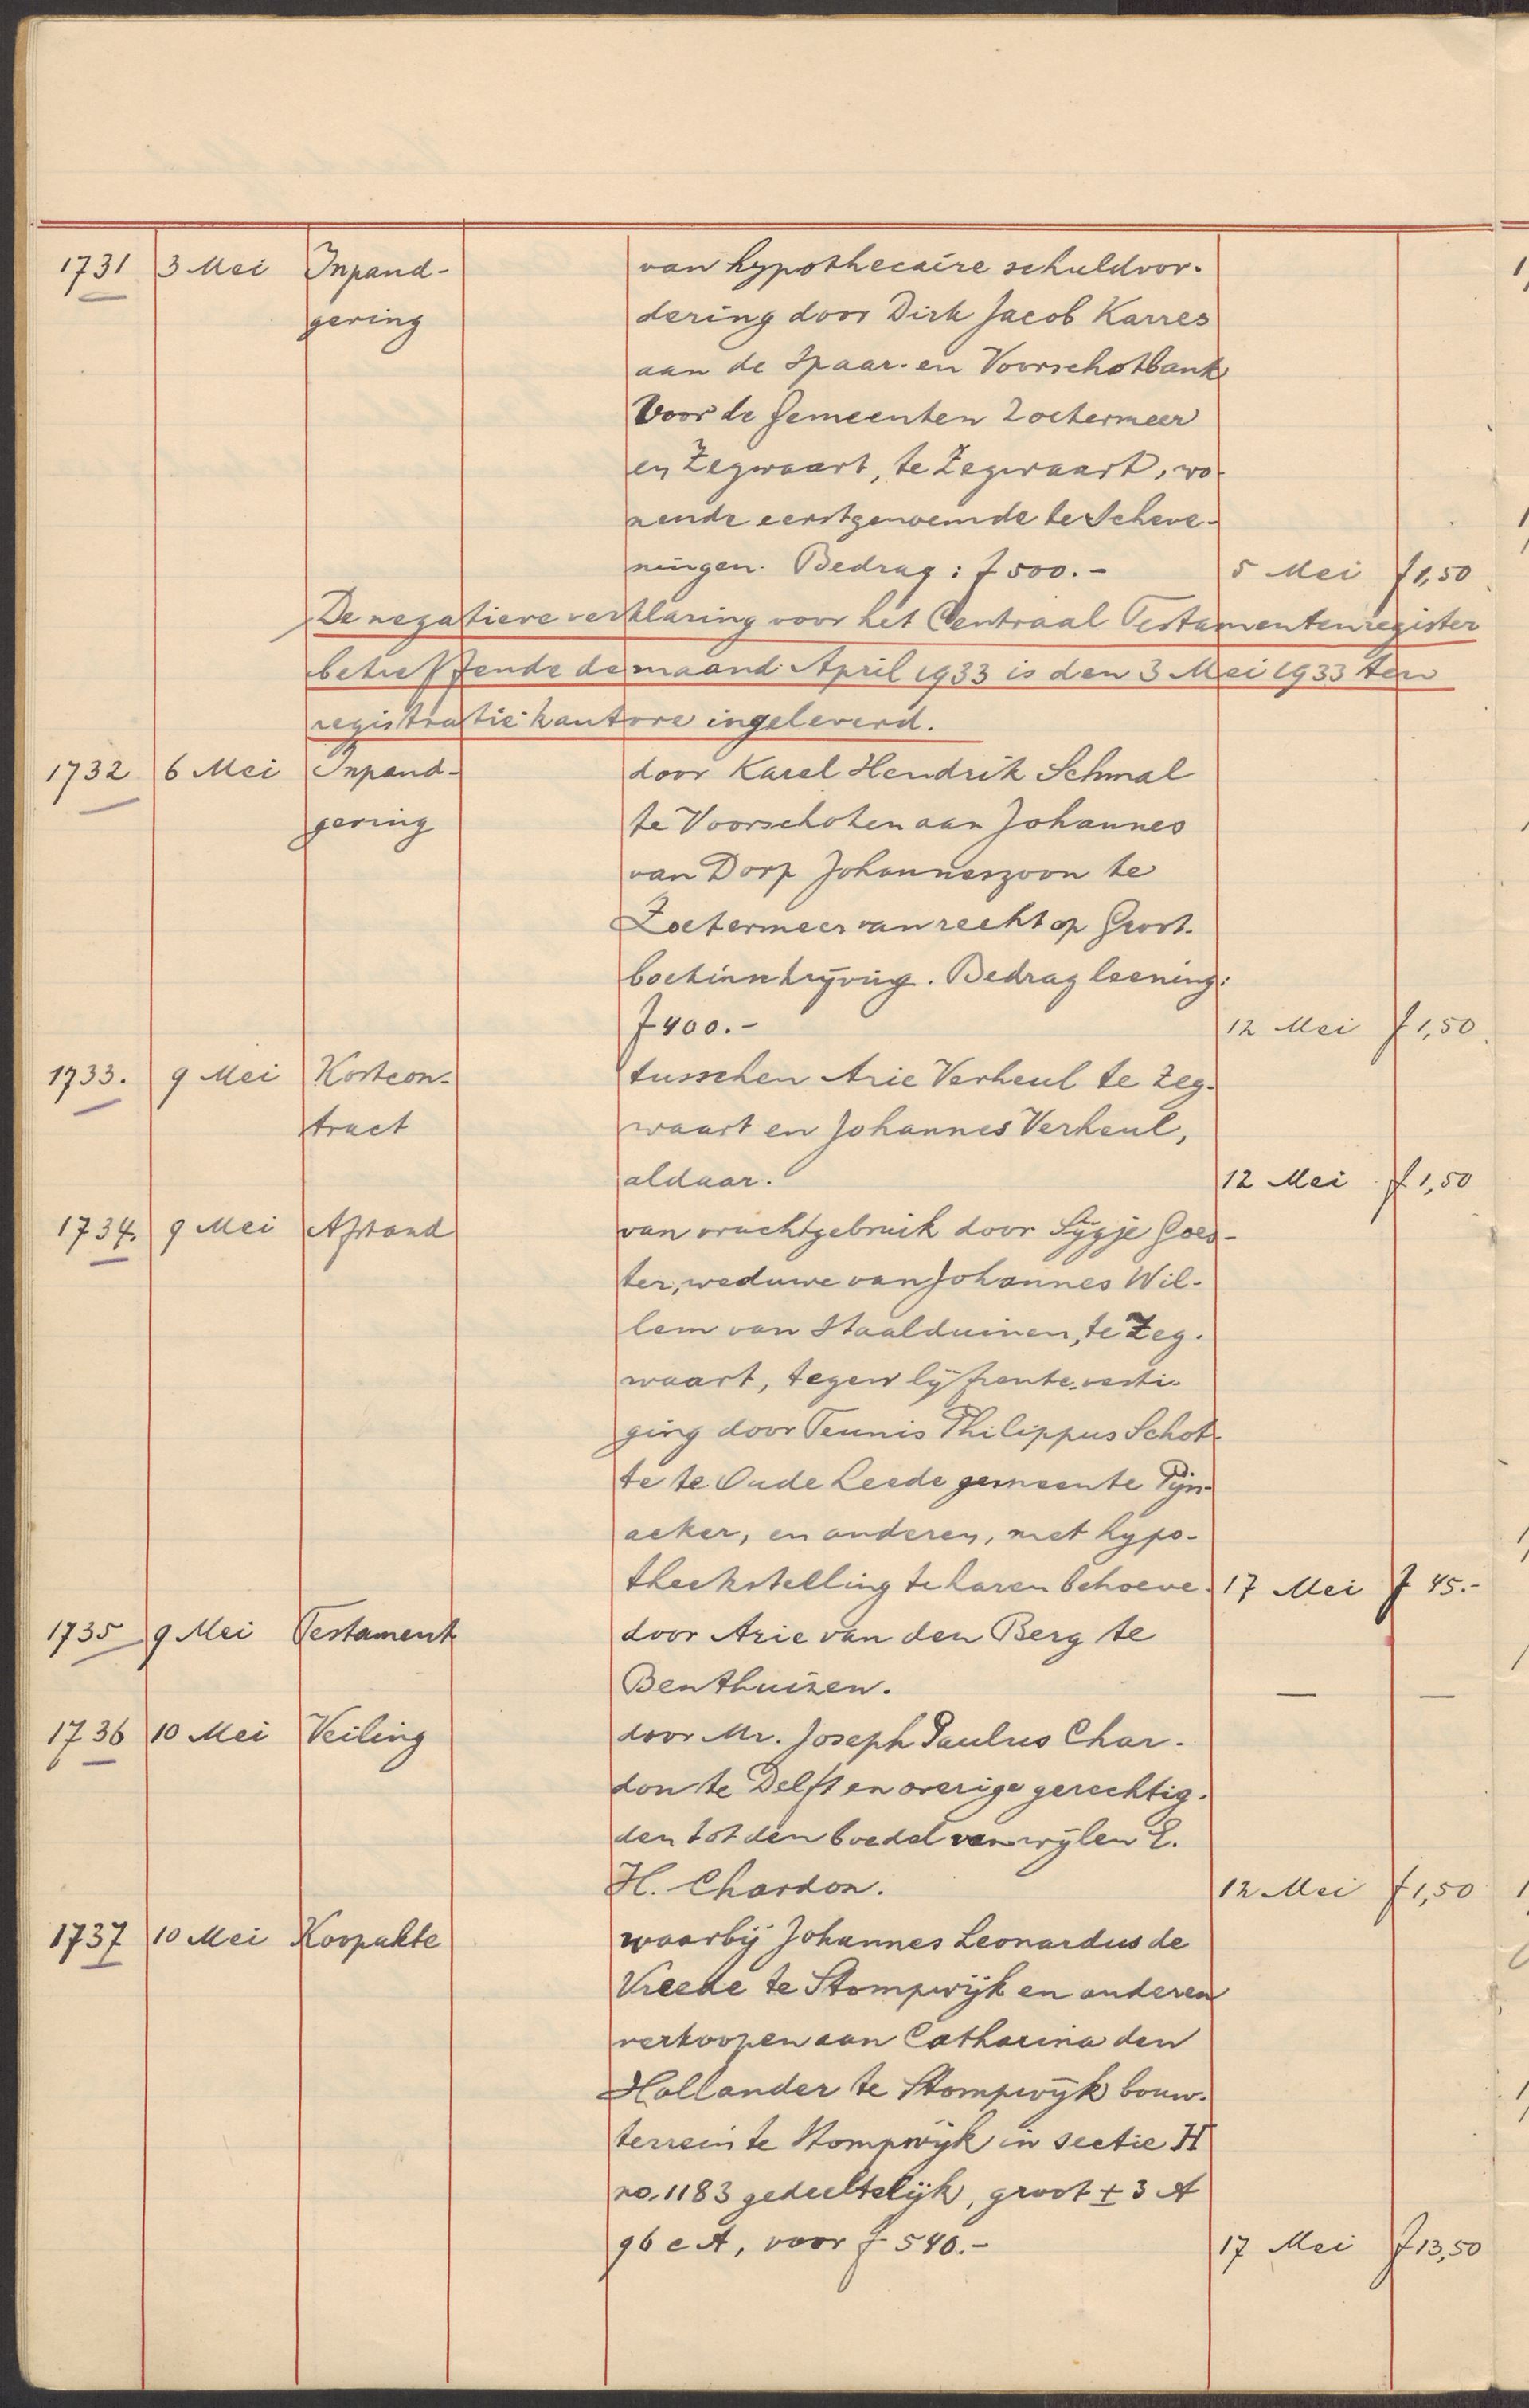 1731 3 Mei Inpand- van hypothecaire schuldvor-
gering dering door Dirk Jacob Karres
aan de Spaar- en Voorschotbank
voor de Gemeenten Zoetermeer
en Zegwaart, te Zegwaart, wo-
nende eerstgenoemde te Scheve-
ningen. Bedrag: f 500.- 5 Mei f 1,50
De negatieve verklaring voor het Centraal Testamentenregister
betreffende de maand April 1933 is den 3 Mei 1933 ten
registratiekantore ingeleverd.
1732 6 Mei Inpand- door Karel Hendrik Schmal
gering te Voorschoten aan Johannes
van Dorp Johanneszoon te
Zoetermeer van recht op Groot-
boekinschrijving. Bedrag leening:
f 400.- 12 Mei f 1,50
1733. 9 Mei Kostcon- tusschen Arie Verheul te Zeg-
tract waart en Johannes Verheul,
aldaar. 12 Mei f 1,50
1734. 9 Mei Afstand van vruchtgebruik door Sijgje Goes-
ter, weduwe van Johannes Wil-
lem van Staalduinen, te Zeg-
waart, tegen lijfrente-vesti-
ging door Teunis Philippus Schot-
te te Oude Leede gemeente Pijn-
acker, en anderen, met hypo-
theekstelling te haren behoeve. 17 Mei f 45.-
1735 9 Mei Testament door Arie van den Berg te
Benthuizen. — —
1736 10 Mei Veiling door Mr. Joseph Paulus Char-
don te Delft en overige gerechtig-
den tot den boedel van wijlen E.
H. Chardon. 12 Mei f 1,50
1737 10 Mei Koopakte waarbij Johannes Leonardus de
Vreede te Stompwijk en anderen
verkoopen aan Catharina den
Hollander te Stompwijk bouw-
terrein te Stompwijk in sectie H
no. 1183 gedeeltelijk, groot ± 3 A
96 cA, voor f 540.- 17 Mei f 13,50